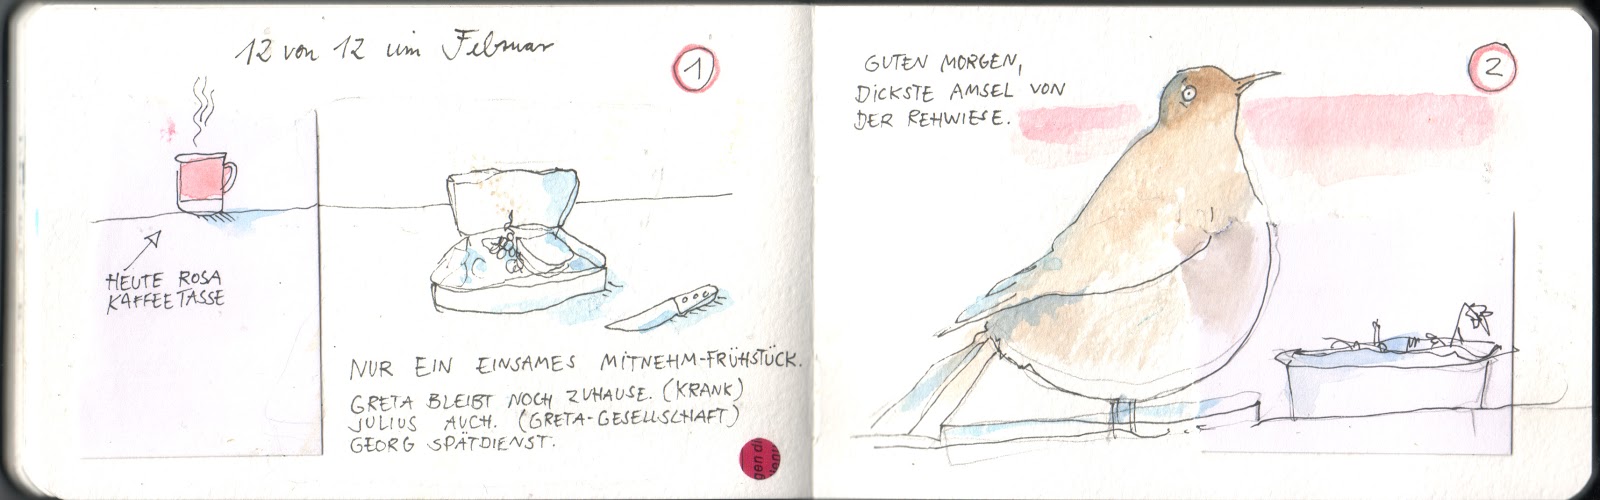 12 von 12 im Februar
1
HEUTE ROSA
KAFFEETASSE
NUR EIN EINSAMES MITNEHM-FRÜHSTÜCK.
GRETA BLEIBT NOCH ZUHAUSE. (KRANK)
JULIUS AUCH. (GRETA-GESELLSCHAFT)
GEORG SPÄTDIENST.
gen di
GUTEN MORGEN,
DICKSTE AMSEL VON
DER REHWIESE.
2